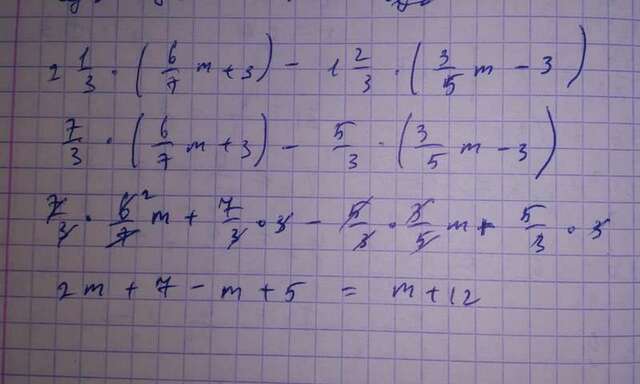 2 1/3 · (6/7 m + 3) - 1 2/3 · (3/5 m - 3)
7/3 · (6/7 m + 3) - 5/3 · (3/5 m - 3)
7/3 · 6/7 2 m + 7/3 · 3 - 5/3 · 3/5 m + 5/3 · 3
2m + 7 - m + 5 = m + 12